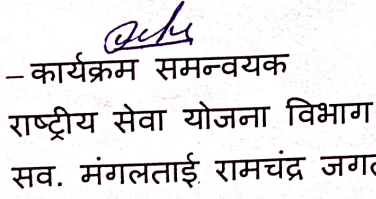 – कार्यक्रम समन्वयक
राष्ट्रीय सेवा योजना विभाग
सव. मंगलताई रामचंद्र